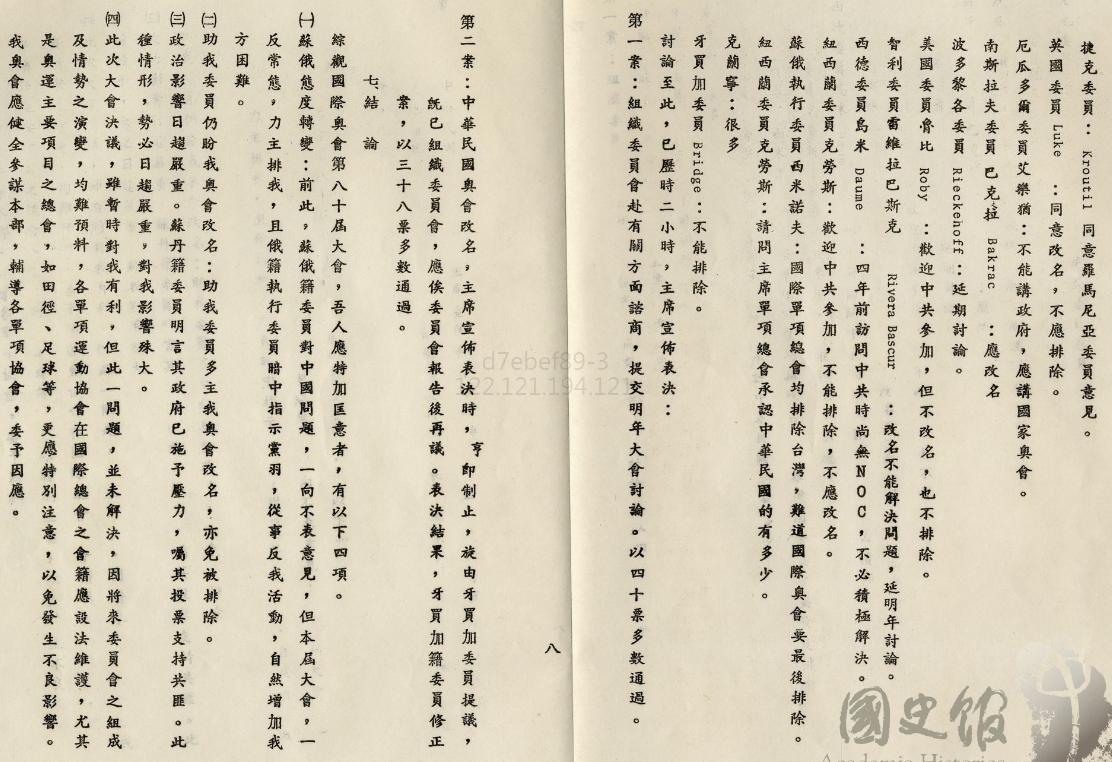 捷克委員：Kroutil 同意羅馬尼亞委員意見。
英國委員 Luke ：同意改名，不應排除。
厄瓜多爾委員艾樂猶：不能講政府，應講國家奧會。
南斯拉夫委員 巴克拉 Bakrac ：應改名
波多黎各委員 Rieckehoff：延期討論。
美國委員魯比 Roby ：歡迎中共參加，但不改名，也不排除。
智利委員雷維拉巴斯克 Rivera Bascur ：改名不能解決問題，延明年討論。
西德委員島米 Daume ：四年前訪問中共時尚無NOC，不必積極解決。
紐西蘭委員克勞斯：歡迎中共參加，不能排除，不應改名。
蘇俄執行委員西米諾夫：國際單項總會均排除台灣，難道國際奧會要最後排除。
紐西蘭委員克勞斯：請問主席單項總會承認中華民國的有多少。
克蘭寧：很多
牙買加委員 Bridge：不能排除。
討論至此，已歷時二小時，主席宣佈表決：
第一案：組織委員會赴有關方面諮商，提交明年大會討論。以四十票多數通過。
八
第二案：中華民國奧會改名，主席宣佈表決時，亨即制止，旋由牙買加委員提議，
既已組織委員會，應俟委員會報告後再議。表決結果，牙買加籍委員修正
案，以三十八票多數通過。
七、結論
綜觀國際奧會第八十屆大會，吾人應特加匡意者，有以下四項。
㈠蘇俄態度轉變：前此，蘇俄籍委員對中國問題，一向不表意見，但本屆大會，一
反常態，力主排我，且俄籍執行委員暗中指示黨羽，從事反我活動，自然增加我
方困難。
㈡助我委員仍盼我奧會改名：助我委員多主我奧會改名，亦免被排除。
㈢政治影響日趨嚴重。蘇丹籍委員明言其政府已施予壓力，囑其投票支持共匪。此
種情形，勢必日趨嚴重，對我影響殊大。
㈣此次大會決議，雖暫時對我有利，但此一問題，並未解決，因將來委員會之組成
及情勢之演變，均難預料，各單項運動協會在國際總會之會籍應設法維護，尤其
是奧運主要項目之總會，如田徑、足球等，更應特別注意，以免發生不良影響。
我奧會應健全參謀本部，輔導各單項協會，委予因應。
d7ebef89-3
122.121.194.121
國史館
Academia Historica